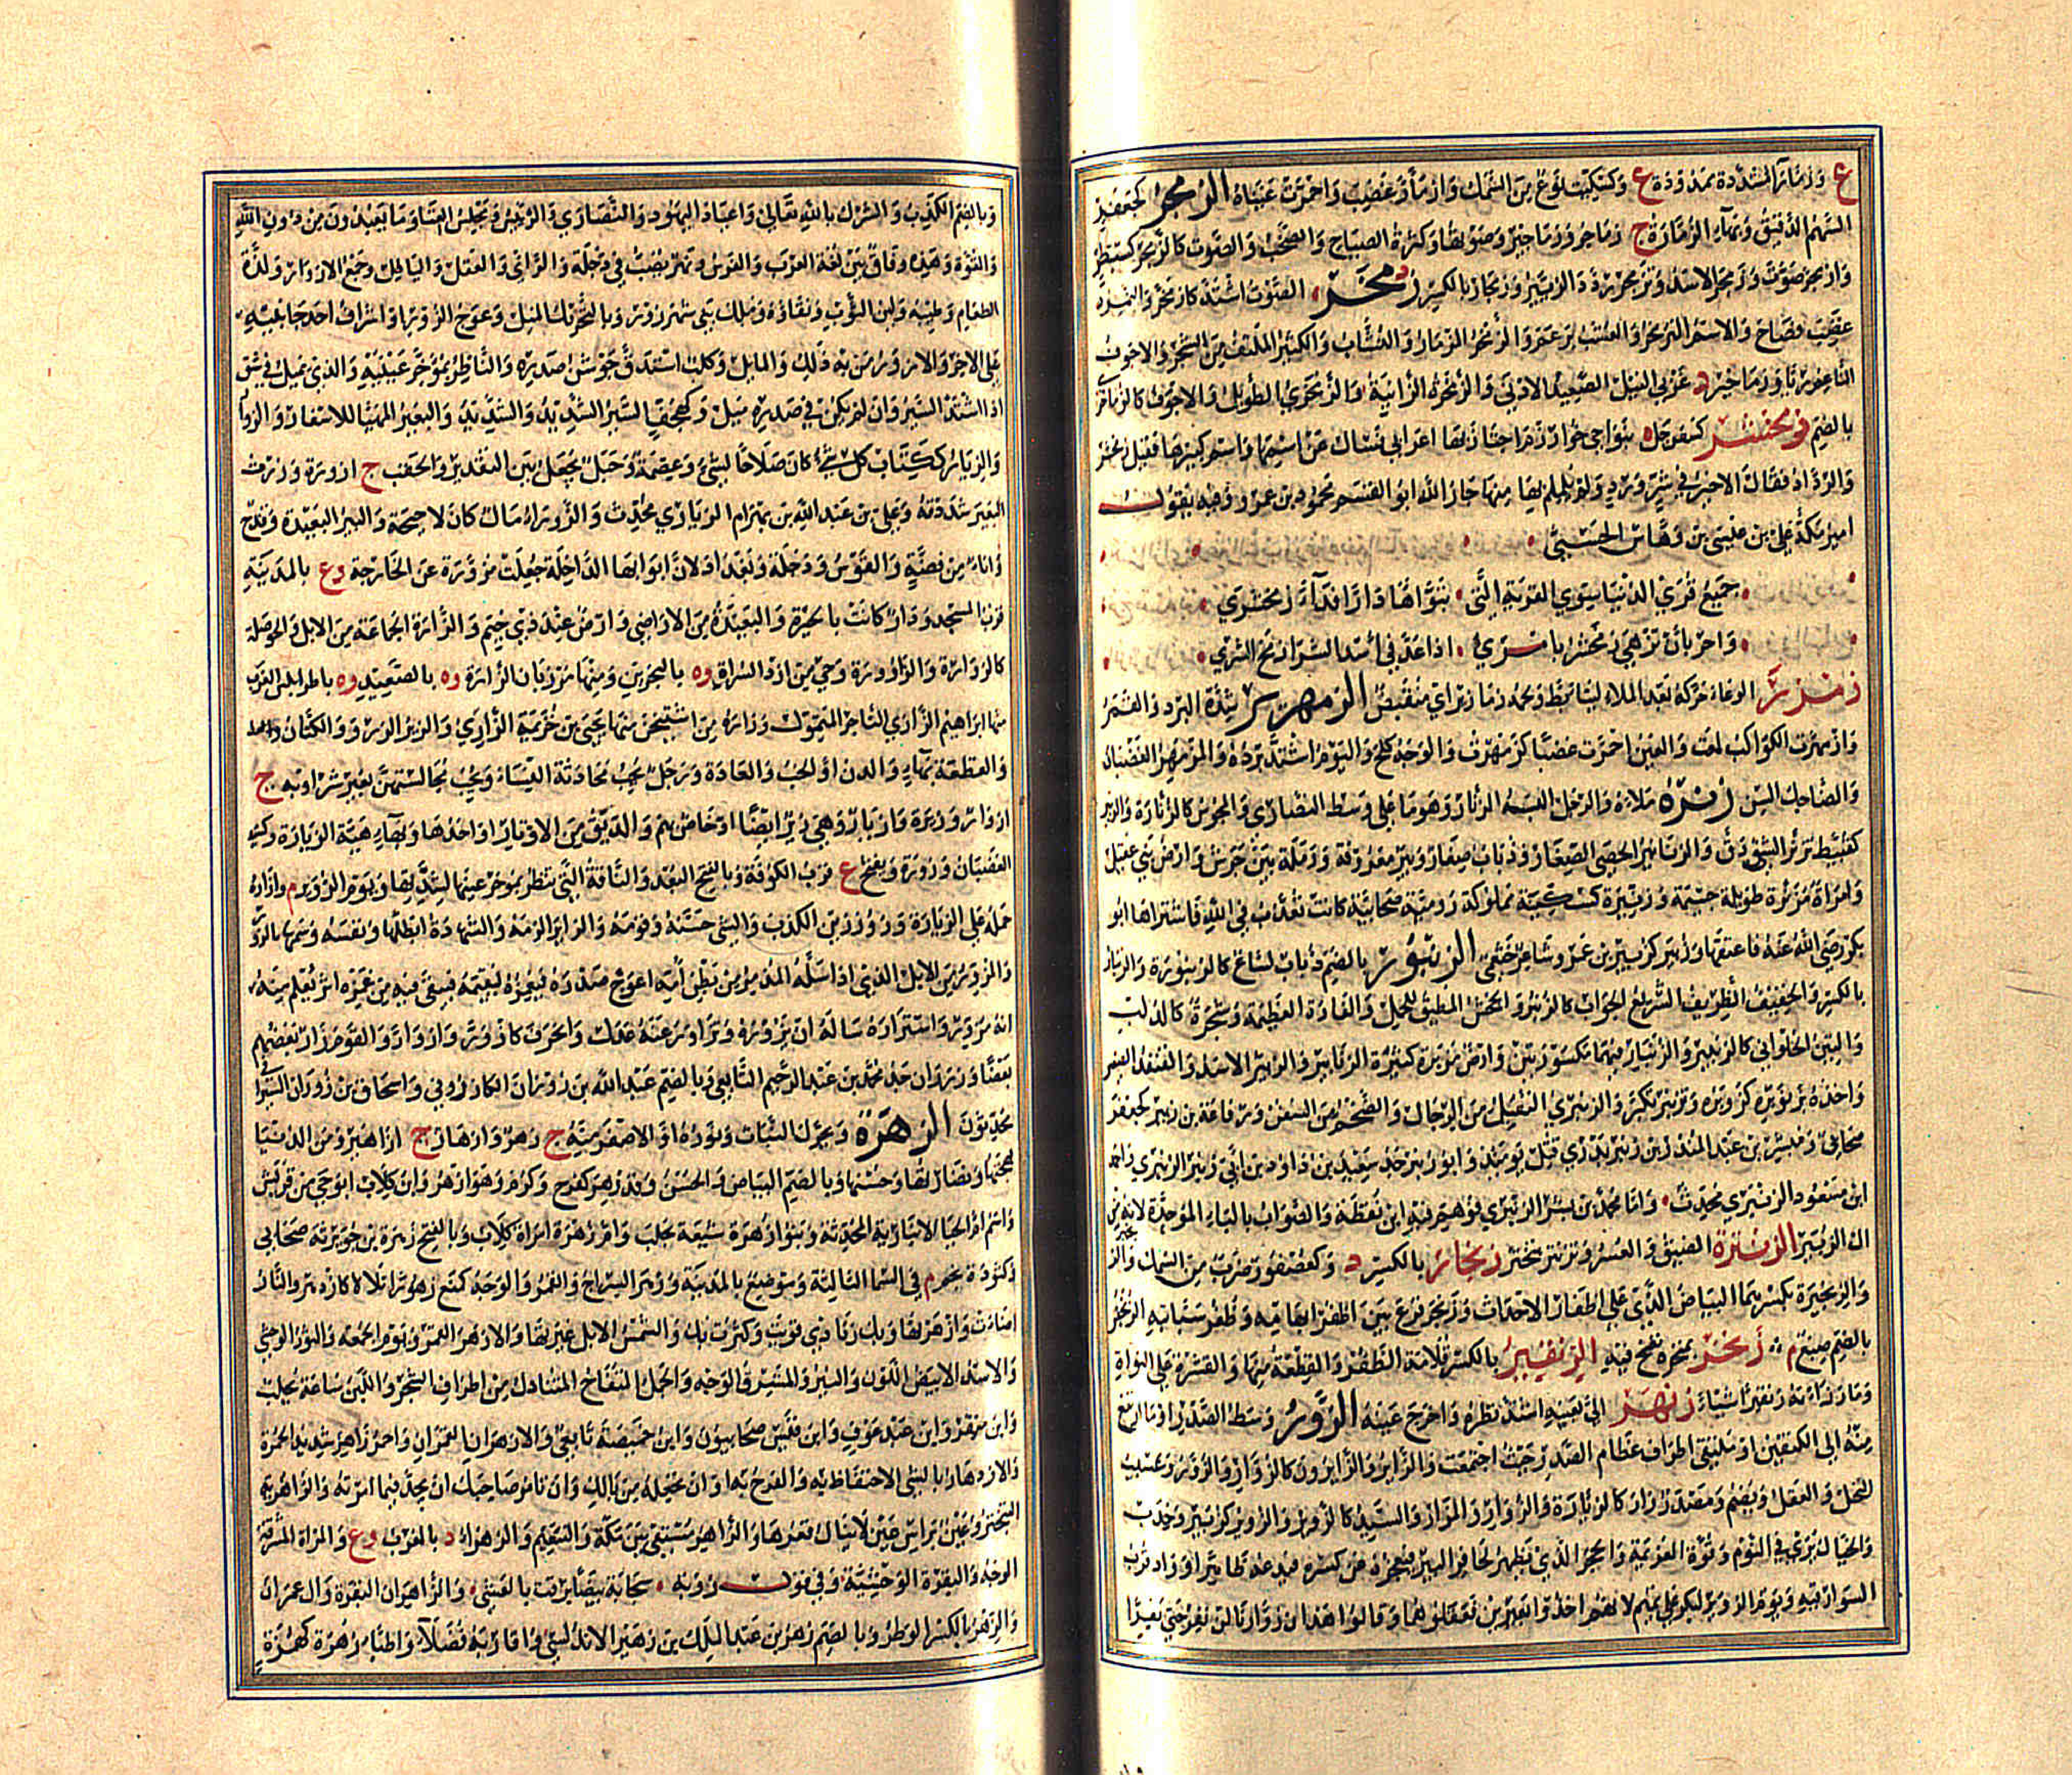 ع وزماراء المشددة ممدودة ع وكسكيت نوع من السمك وازمأر غضب واحمرت عيناه الزمجر كجعفر
السهم الدقيق وبهاء الزمارة ج زماجر وزماجير وصوتها وكثرة الصياح والصخب والصوت كالزمجر كسبطر
وازمجر صوت وزمجر الاسد وتزمجر ردد الزئير وزمجار بالكسر د زمخر الصوت اشتد كازمخر والنمر
غضب فصاح والاسم التزمخر والعشب برعم والزمخر المزمار والنشاب والكثير الملتف من الشجر والاجوف
الناعم ريا وزماخير د غربي النيل الصعيد الادنى والزمخرة الزانية والزمخري الطويل والاجوف كالزماخري
بالضم زمخشر كسفرجل ه بنواحي خوارزم اجتاز بها اعرابي فسال عن اسمها واسم كبيرها فقيل زمخشر
والرداد فقال لا خير في شر ورد ولم يلمم بها منها جار الله ابو القسم محمود بن عمر وفيه يقول
امير مكة علي بن عيسى بن وهاس الحسني
جميع قرى الدنيا سوى القرية التي تبوأها دارا فداء زمخشري
واحر بأن تزهى زمخشر بامرئ اذا عد في أسد الشرى زمخ الشرى
زمزر الوعاء حركه بعد الملء ليتأبط ومحمد زمازير اي متقبض الزمهرير شدة البرد والقمر
وازمهرت الكواكب لمعت والعين احمرت غضبا كزمهرت والوجه كلح واليوم اشتد برده والمزمهر الغضبان
والضاحك السن زنره ملاه والرجل البسه الزنار وهو ما على وسط النصارى والمجوس كالزنارة والزنير
كقبيط تزنر الشيء دق والزنانير الحصى الصغار وذباب صغار وبير معروفة ورملة بين جرش وارض بني عقيل
وامراة مزنرة طويلة جسيمة وزنيرة كسكينة مملوكة رومية صحابية كانت تعذب في الله فاشتراها ابو
بكر رضي الله عنه فاعتقها وزنير كزبير بن عمرو شاعر خثعمي الزنبور بالضم ذباب لساع كالزنبورة والزنبار
بالكسر والخفيف الظريف السريع الجواب كالزنبر والجحش المطيق للحمل والفارة العظيمة وشجرة كالدلب
والتين الحلواني كالزنبير والزنبار فيهما مكسورتين وارض مزبرة كثيرة الزنابير والزنبر الاسد والقنفذ الصغير
واخذه بزنوبره كزوبره وتزنبر تكبر والزنبري الثقيل من الرجال والضخم من السفن ورفاعة بن زنبر كجعفر
صحابي ومبشر بن عبد المنذر بن زنبر بدري قتل يومئذ وابو زنبر جد سعيد بن داود بن ابي زنبر الزنبري واحمد
ابن مسعود الزنبري محدث واما محمد بن بشر الزنبري فوهم فيه ابن نقطة والصواب بالباء الموحدة لانه من
ال الزبير الزنترة الضيق والعسر وتزنتر تبختر زنجار بالكسر د وكعصفور ضرب من السمك والزنجير
والزنجيرة بكسرهما البياض الذي على اظفار الاحداث وزنجر قرع بين ظفر ابهامه وظفر سبابته الزنجفر
بالضم صبغ م زنخر بمنخره نفخ فيه الزنفير بالكسر قلامة الظفر والقطعة منها والقشرة على النواة
وما رزأته زنقيرا شيا زنهر الى بعينه اشتد نظره واخرج عينه الزور وسط الصدر او ما ارتفع
منه الى الكتفين او ملتقى اطراف عظام الصدر حيث اجتمعت والزائر والزائرون كالزوار والزور وعسيب
النخل والعقل ويضم ومصدر زار كالزيارة والزوار والمزار والسيد كالزوير والزوير كزبير وخدب
والخيال يرى في النوم وقوة العزيمة والحجر الذي يظهر لحافر البير فيعجز عن كسره فيدعه ظاهرا وواد قرب
السوارقية ويوم الزور لبكر على تميم لانهم اخذوا بعيرين فعقلوهما وقالوا هذان زورانا لن نفر حتى يفرا
وبالضم الكذب والشرك بالله تعالى واعياد اليهود والنصارى والرئيس ومجلس الغناء وما يعبد من دون الله
والقوة وهذه وفاق بين لغة العرب والفرس ونهر يصب في دجلة والراي والعقل والباطل وجمع الازور ولذة
الطعام وطيبه ولين الثوب ونقاؤه وملك بنى شهرزور وبالتحريك الميل وعوج الزور او اشراف احد جانبيه
على الاخر والازور من به ذلك والمايل وكلب استدق جوشن صدره والناظر بمؤخر عينيه والذي يميل في شق
اذا اشتد السير وان لم يكن في صدره ميل وكهجف السير الشديد والشديد والبعير المهيا للاسفار والزوار
والزيار ككتاب كل شيء كان صلاحا لشيء وعصمة وحبل يجعل بين التصدير والحقب ج ازورة وزرت
البعير شددته وعلي بن عبد الله بن بهرام الزياري محدث والزوراء مال كان لاحيحة والبير البعيدة والقدح
واناء من فضة والقوس ودجلة وبغداد لان ابوابها الداخلة جعلت مزورة عن الخارجة وع بالمدينة
قرب المسجد ودار كانت بالحيرة والبعيدة من الاراضي وارض عند ذي خيم والزارة الجماعة من الابل والحوصلة
كالزوارة والزاورة وحي من ازد السراة وه بالبحرين ومنها مرزبان الزارة وه بالصعيد وه باطرابلس الغرب
منها ابراهيم الزاري التاجر المتمول وزارة من اشتيخن منها يحيى بن خزيمة الزاري والزير الوتر والكتان
والقطعة بهاء والدن او الحب والعادة ورجل يحب محادثة النساء ويحب مجالستهن بغير شر او به ج
ازوار وزيرة وازيار وهي زير ايضا او خاص بهم والدقيق من الاوتار او احدها وبهاء هيئة الزيارة وكسيد
الغضبان وزورة ويفتح ع قرب الكوفة وبالفتح البعد والناقة التي تنظر بمؤخر عينها لشدتها ويوم الزوير م وازاره
حمله على الزيارة وزور زين الكذب والشيء حسنه وقومه والزاير الزمه والشهادة ابطلها ونفسه وسمها بالزور
والمزور من الابل الذي اذا سله المذمر من بطن امه اعوج صدره فيغمزه ليقيمه فيبقى فيه من غمزه اثر يعلم منه
انه مزور واستزاره ساله ان يزوره وتزاور عنه عدل وانحرف كازور وازوار والقوم زار بعضهم
بعضا وزوران جد محمد بن عبد الرحيم التابعي وبالضم عبد الله بن زوران الكازروني واسحاق بن زوران السيرافي
محدثون الزهرة ويحرك النبات ونوره او الاصفر منه ج زهر وازهار جج ازاهير ومن الدنيا
بهجتها ونضارتها وحسنها وبالضم البياض والحسن وقد زهر كفرح وكرم وهو ازهر وابن كلاب ابو حي من قريش
واسم ام الحيا الانبارية المحدثة وبنو زهرة شيعة بحلب وام زهرة امراة كلاب وبالفتح زهرة بن جويرية صحابي
وكتؤدة نجم م في السما الثالثة وموضع بالمدينة وزهر السراج والقمر والوجه كمنع زهورا تلالا كازدهر والنار
اضاءت وازهرتها وبك زنادي قويت وكثرت بك والشمس الابل غيرتها والازهر القمر ويوم الجمعة والثور الوحشي
والاسد الابيض اللون والنير والمشرق الوجه والجمل المتفاج المتناول من اطراف الشجر واللبن ساعة يحلب
وابن منقر وابن عبد عوف وابن قيس صحابيون وابن خميصة تابعي والازهران القمران واحمر زاهر شديد الحمرة
والازدهار بالشيء الاحتفاظ به والفرح به او ان تجعله من بالك وان تامر صاحبك ان يجد فيما امرته والزاهرية
التبختر وعين براس عين لا ينال قعرها والزاهر مستقى بين مكة والتنعيم والزهراء د بالمغرب وع والمراة المشرقة
الوجه والبقرة الوحشية وفي قول رؤبة سحابة بيضا برقت بالعشي والزهراوان البقرة وال عمران
والزهر بالكسر الوطر وبالضم زهر بن عبد الملك بن زهير الاندلسي واقاربه فضلاء واطباء وزهرة كهمزة